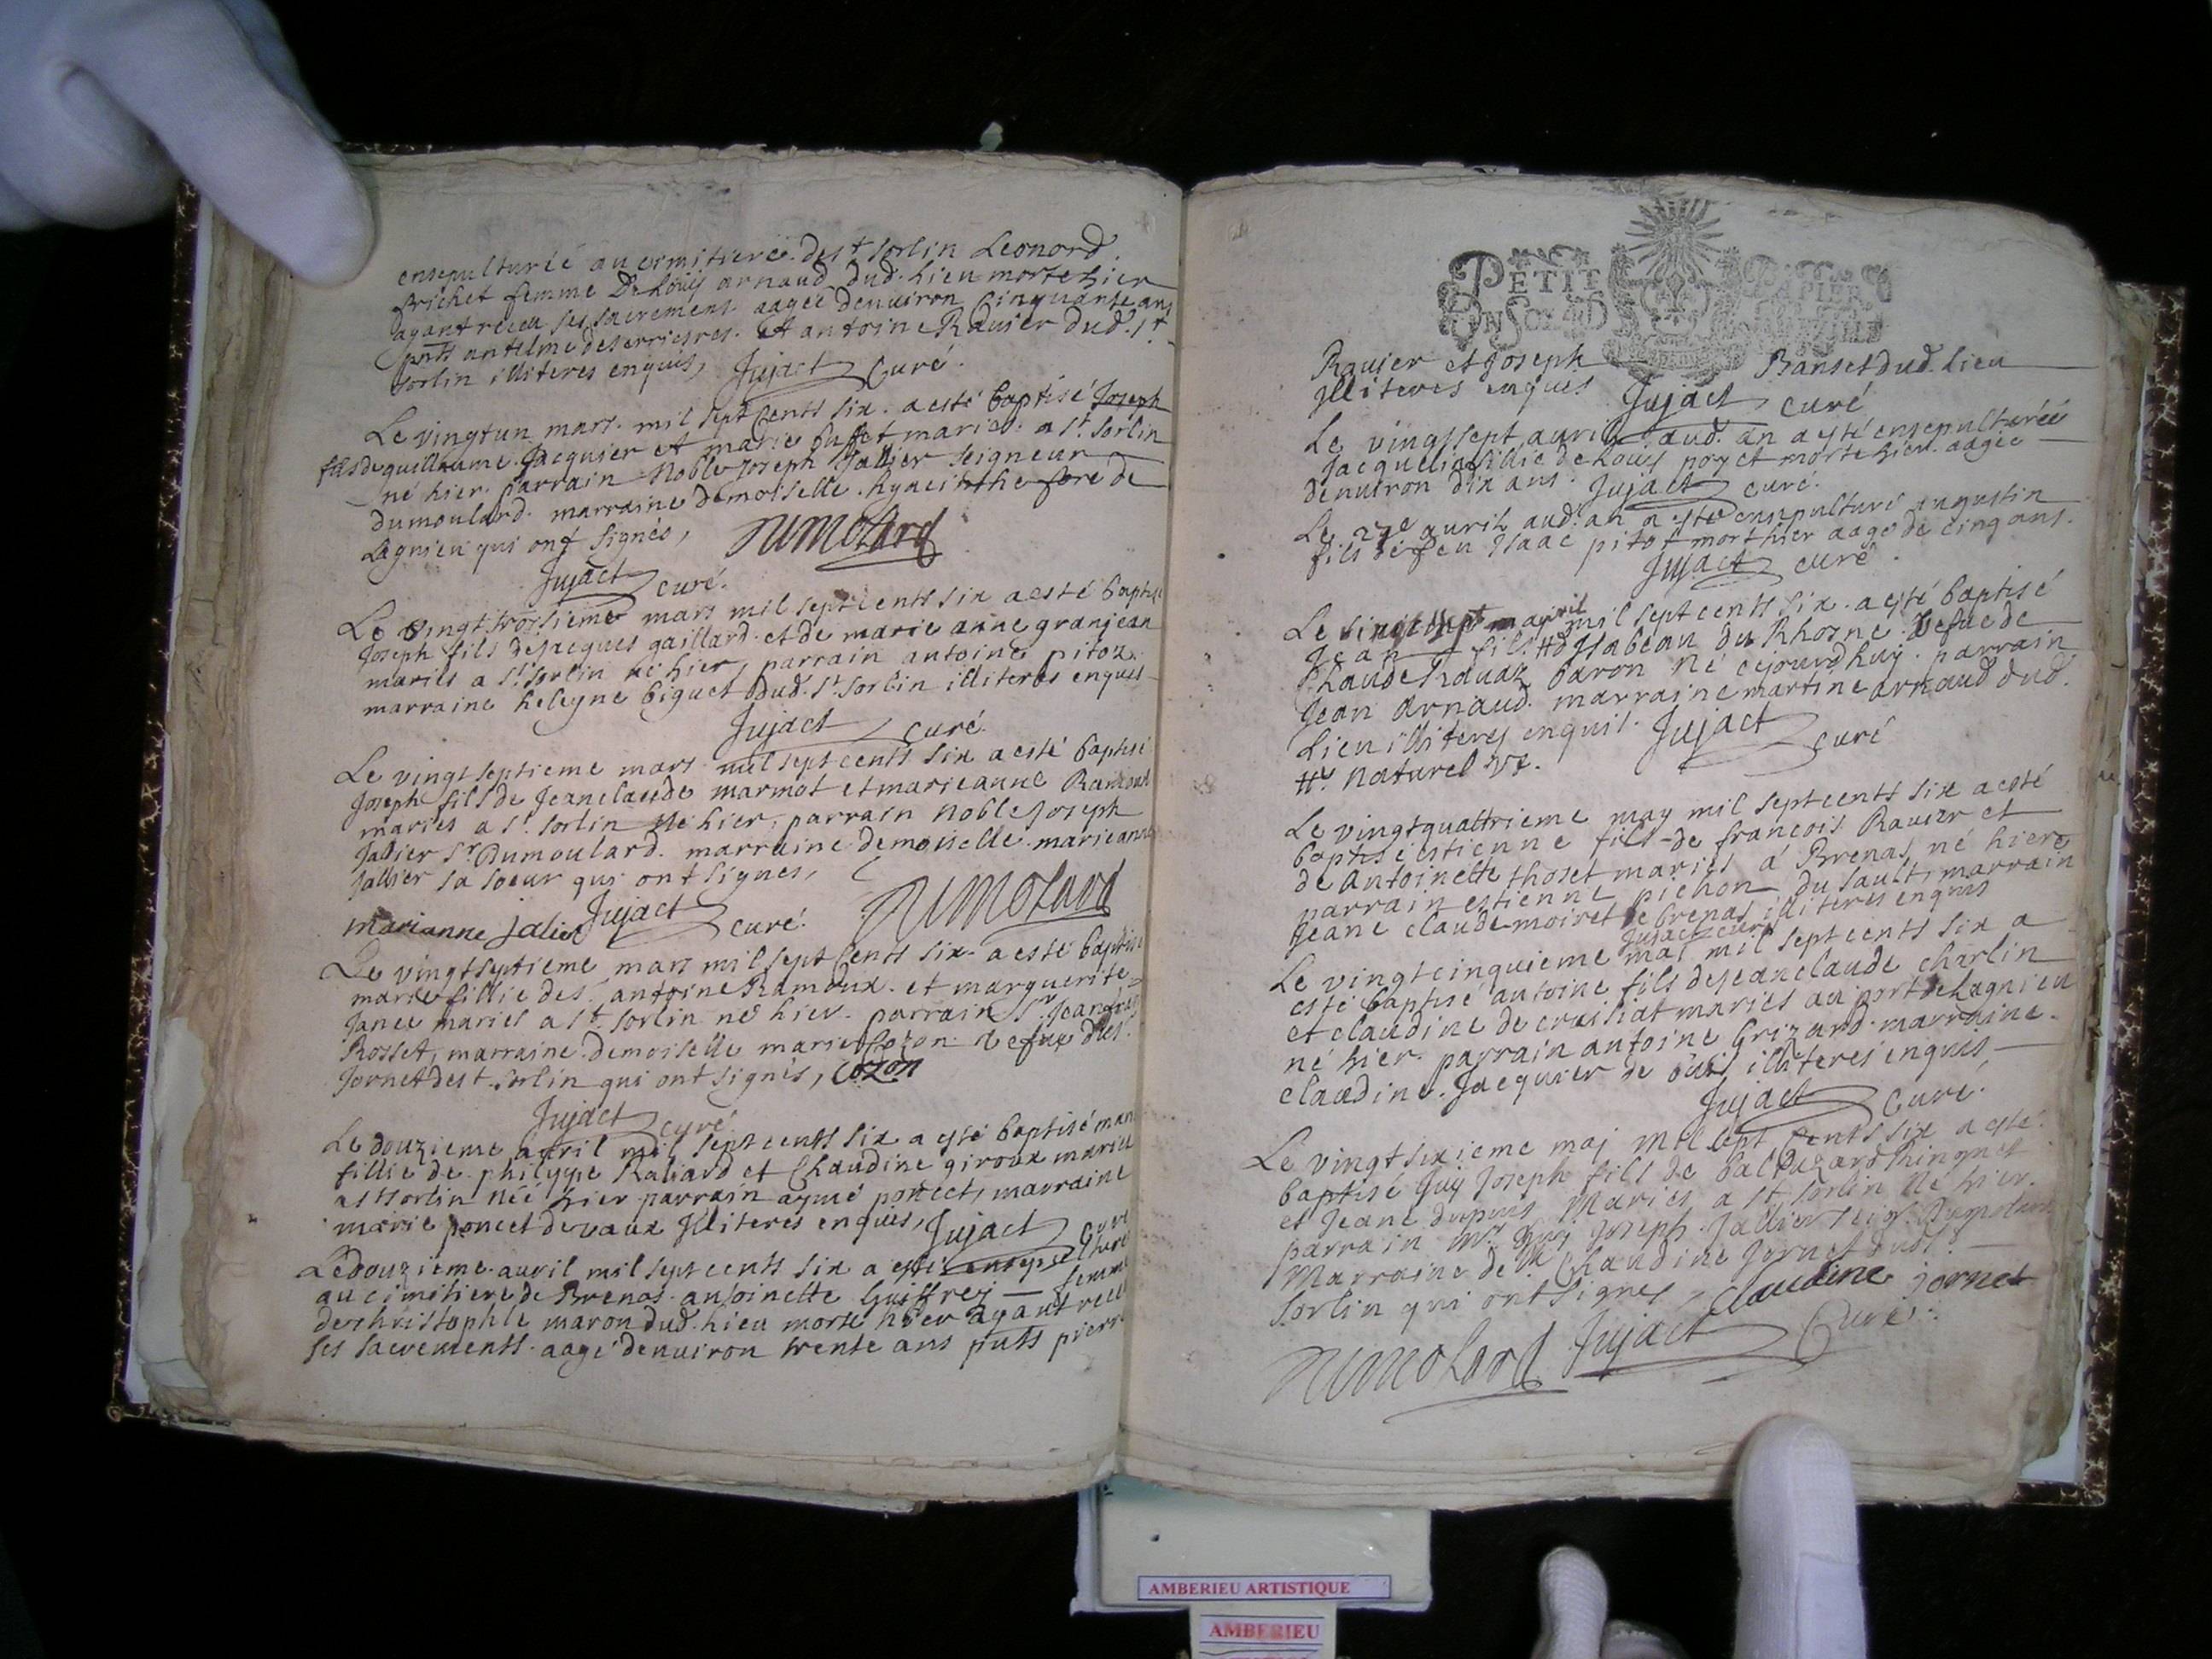 ensepulturée au cimitiere de st sorlin Leonord
Brichet femme De Louis arnaud dud. Lieu morte hier
ayant receu ses sacremens aagée denuiron Cinquante ans
pnts antelme deserriesres et antoine Rauier dud. st
sorlin illiteres enquis, Jujact Curé
Le vingtun mars mil sept Cents six a esté baptisé Joseph
fils de guillaume Jacquier et marie maries a st. sorlin
né hier parrain Noble Joseph Jallier seigneur
dumoulard marraine demoiselle hyacinthe fore de
Lagnieu qui ont signés, Dumolard
Jujact curé.
Le vingt troisieme mars mil sept cents six a esté baptisé
Joseph fils de Jacques gaillard et de marie anne granjean
mariés a st. sorlin né hier, parrain antoine pitoz
marraine heleyne biguet dud. st sorlin illiteres enquis
Jujact curé.
Le vingt septieme mars mil sept cents six a esté baptisé
Joseph fils de Jeanclaude marmot et marieanne Ramoud
mariés a st. sorlin né hier, parrain noble Joseph
Jallier sr. Dumoulard. marraine demoiselle marieanne
Jallier sa soeur qui ont signes,
marianne jalier Jujact curé. Dumolard
Le vingt septieme mars mil sept Cents six a esté baptisée
marie fillie de s. antoine Ramoux et marguerite
Janex mariés a st. sorlin neé hier parrain sr. Jean
Rosset, marraine demoiselle marie Cozon vefue du s.
Jornet de st. sorlin qui ont signés, Cozon
Jujact curé.
Le douzieme auril mil sept cents six a esté baptisé
fillie de philippe Rabiard et Claudine giroux mariés
a st sorlin néé hier parrain aymé poncet, marraine
marie poncet de vaux Illiteres enquis, Jujact Curé
Le douzieme auril mil sept cents six a esté ensepulturé
au cimetiere de Brenas antoinette Guiffrey femme
de christophle maron dud. Lieu morte hier ayant receu
ses sacrements. aagé denuiron trente ans pnts pierre
PETIT PAPIER
UN SOL
Rauier et Joseph Banset dud. Lieu
Illiteres enquis Jujact curé
Le vingtsept auril aud. an a esté ensepulturéé
Jacqueline fillie de Louis poncet morte hier aagée
denuiron dix ans. Jujact curé.
Le 27e auril aud. an a esté ensepulturé augustin
fils de feu Isaac pitot mort hier aagé de cinq ans.
Jujact curé.
Le vingtsept auril mil sept cents six a esté baptisé
Jean fils # d'Isabeau du Rhosne vefue de
Claude Rauaz baron né cejourdhuy. parrain
Jean arnaud. marraine martine arnaud dud.
Lieu illiteres enquis. Jujact curé
#. naturel
Le vingtquattrieme may mil sept cents six a esté
baptisé estienne fils de francois Rauier et
de Antoinette thoset mariés á Brenas, né hiere
parrain estienne pichon du sault, marrain
Jeane claude moiret de brenas illiteres enquis
Jujact curé
Le vingtcinquieme mai mil sept cents six a
esté baptisé antoine fils de Jeanclaude charlin
et claudine de crusiat mariés au port de Lagnieu
né hier. parrain antoine brizard marraine
claudine Jacquier de illiteres enquis
Jujact Curé.
Le vingtsixieme maj mil sept Cents six a esté
baptisé Guy Joseph fils de baltazard
et Jeane dupuis mariés a st sorlin né hier.
parrain mr. Guy Joseph Jallier seigr. Dumolard
Marraine delle Claudine Jornet dud. st.
sorlin qui ont signes, claudine jornet
Dumolard Jujact Curé.
AMBERIEU ARTISTIQUE
AMBERIEU